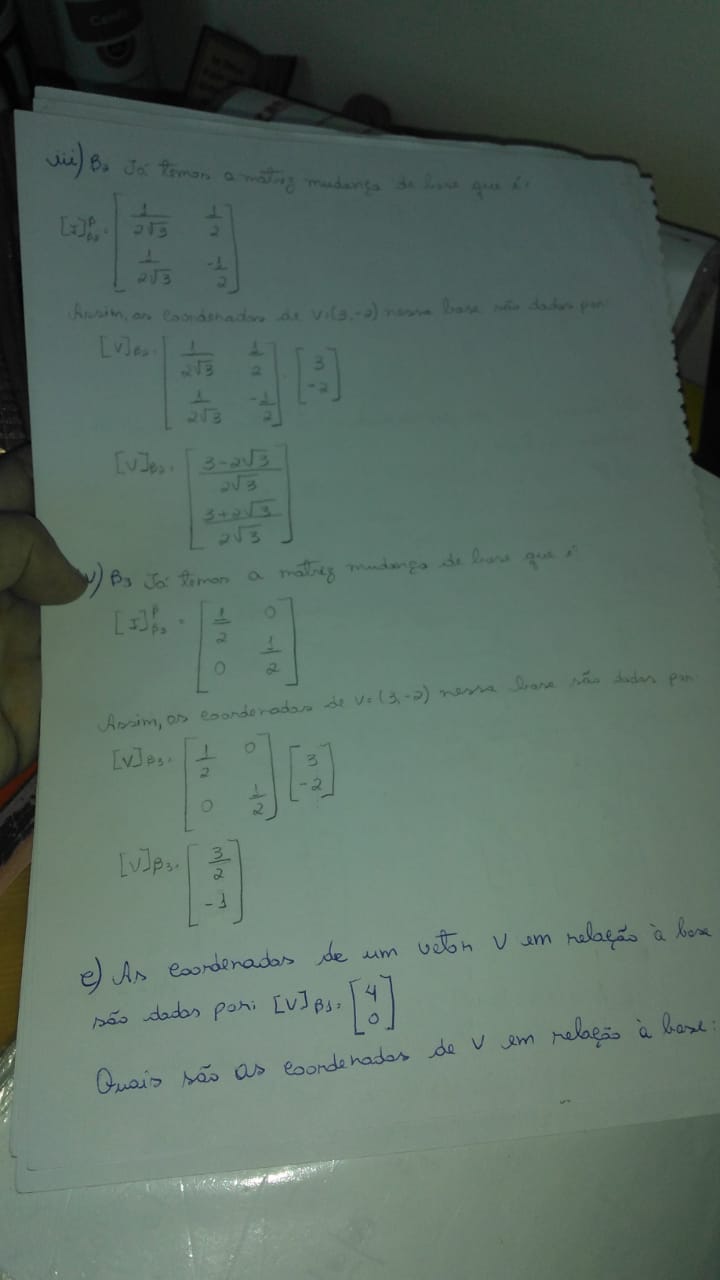 iii) β2 Já temos a matriz mudança de base que é:
[I]β β2 = [ 1/2√3 1/2
1/2√3 -1/2 ]
Assim, as coordenadas de v=(3,-2) nessa base são dadas por:
[V]β2 = [ 1/2√3 1/2
1/2√3 -1/2 ] . [ 3
-2 ]
[V]β2 = [ 3-2√3/2√3
3+2√3/2√3 ]
) β3 Já temos a matriz mudança de base que é
[I]β β3 = [ 1/2 0
0 1/2 ]
Assim, as coordenadas de v=(3,-2) nessa base são dadas por:
[V]β3 = [ 1/2 0
0 1/2 ] [ 3
-2 ]
[V]β3 = [ 3/2
-1 ]
e) As coordenadas de um vetor V em relação à base
são dadas por: [V]β1 = [ 4
0 ]
Quais são as coordenadas de V em relação à base: